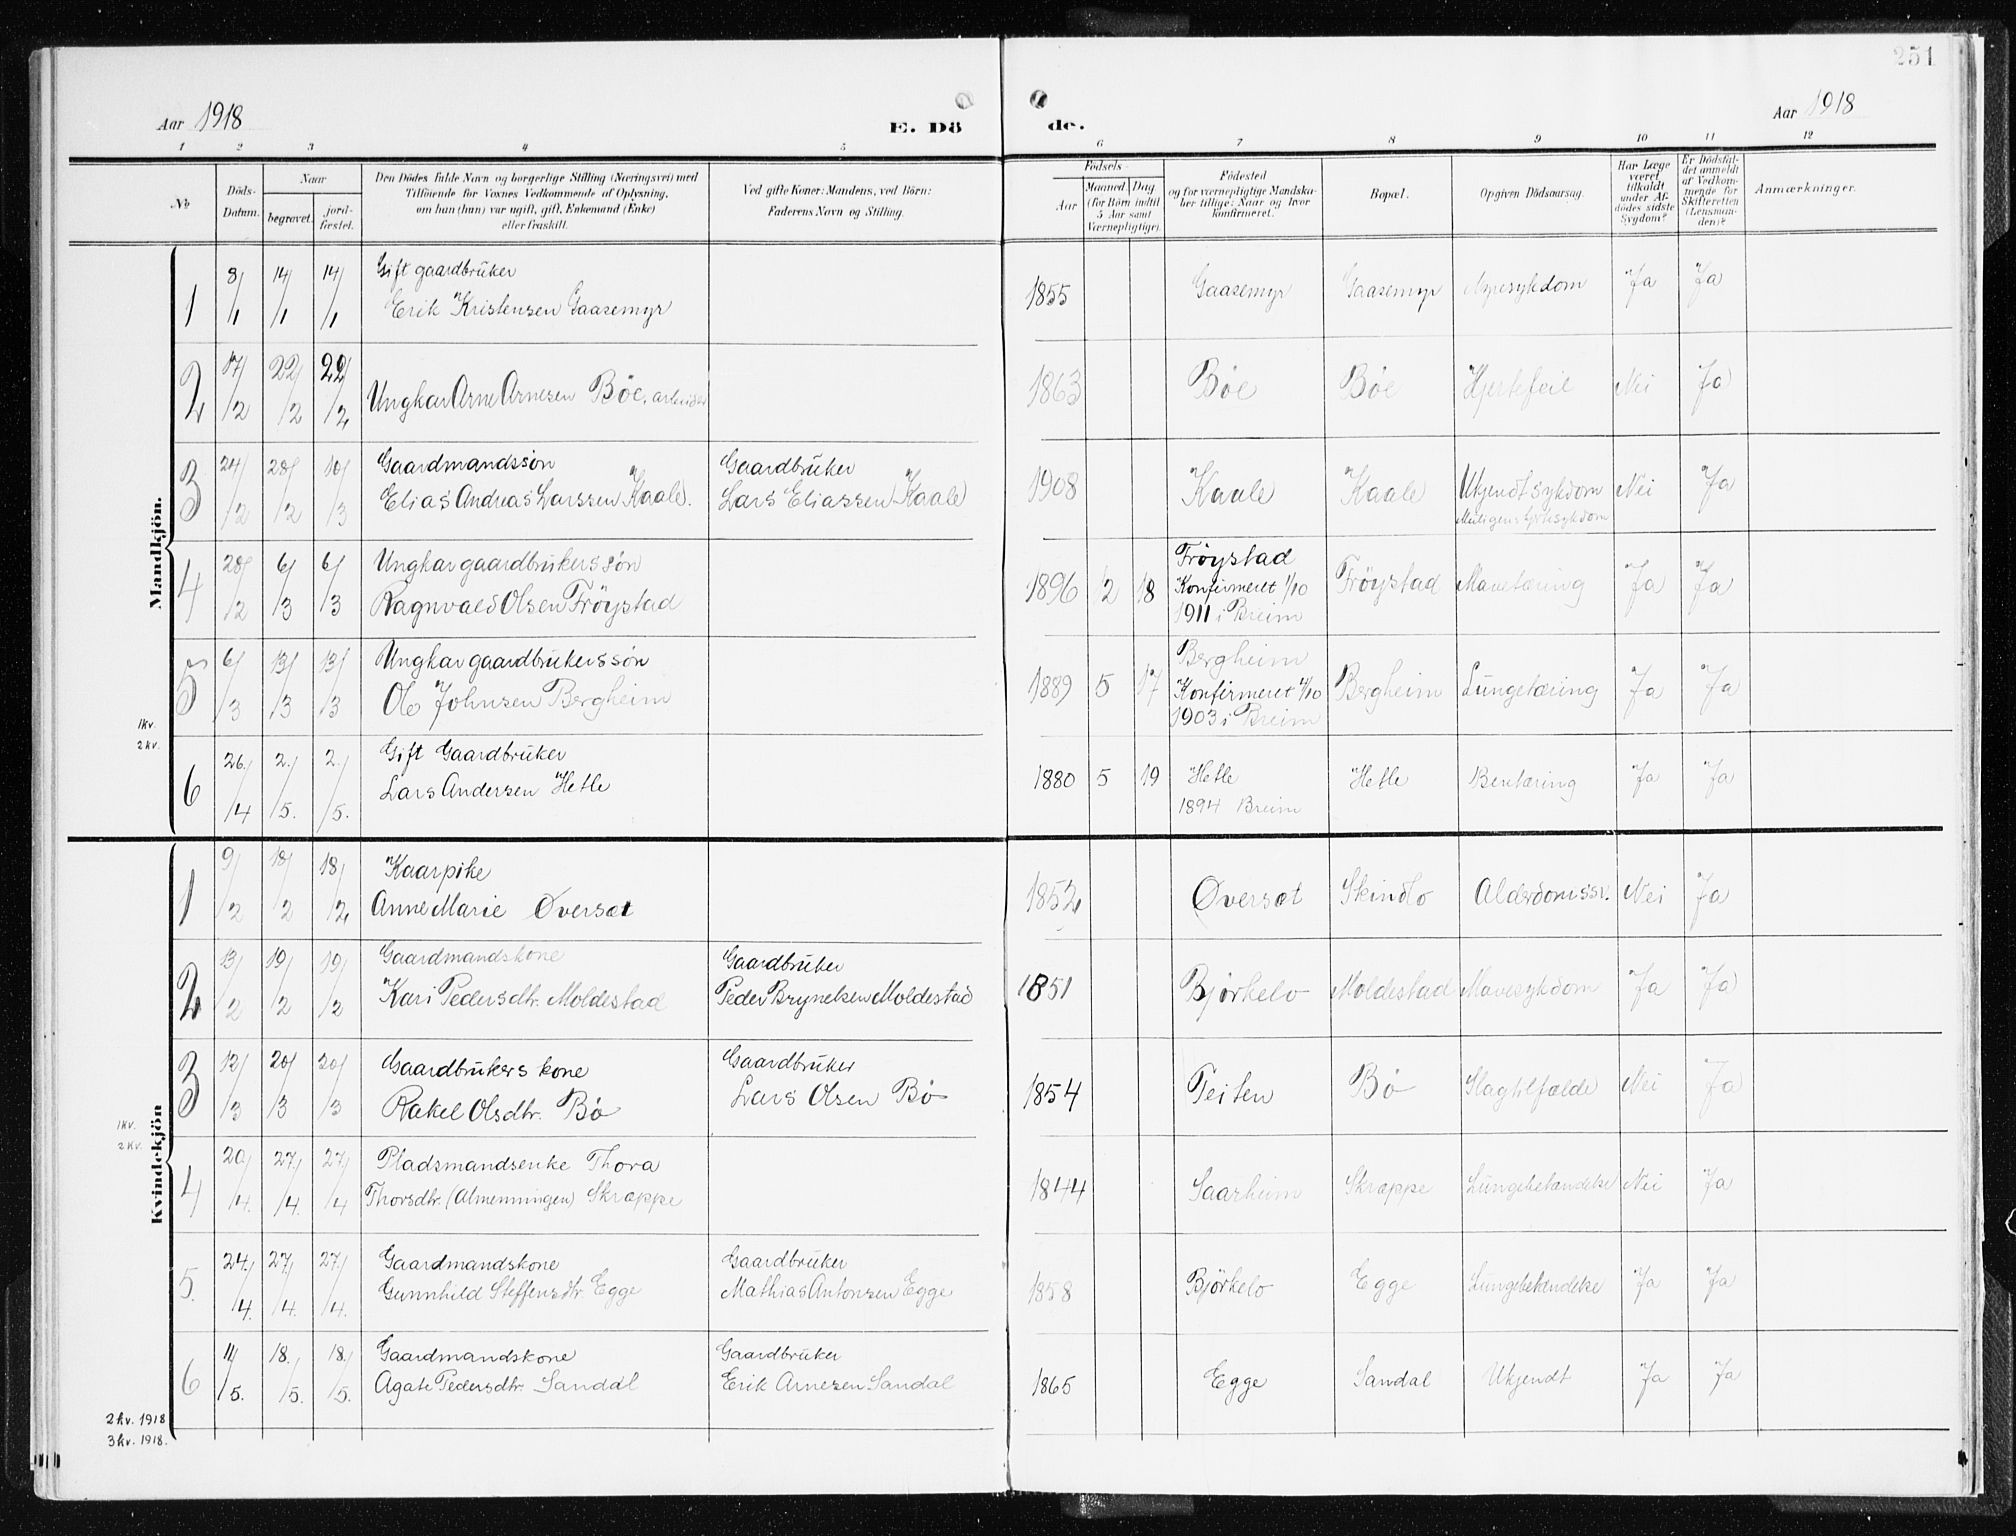 251
Aar 1918
E. Dö
de.
Aar 1918
1 2 3 4 5 6 7 8 9 10 11 12
No
Döds-Datum.
Naar
begravet.
jord-fæstet.
Den Dödes fulde Navn og borgerlige Stilling (Næringsvei) med
Tilföiende for Voxnes Vedkommende af Oplysning,
om han (hun) var ugift, gift, Enkemand (Enke)
eller fraskilt.
Ved gifte Koner: Mandens, ved Börn:
Faderens Navn og Stilling.
Födsels
Aar
Maaned (for Börn indtil 5 Aar samt Værnepligtige).
Dag
Födested
og for værnepligtige Mandska-
ber tillige: Naar og hvor
konfirmeret.
Bopæl.
Opgiven Dödsaarsag.
Har Læge været tilkaldt under Af-dödes sidste Sygdom?
Er Dödsfal-det anmeldt af Vedkom-mende for Skifteretten (Lensman-den)?
Anmærkninger.
Mandkjön.
1 8/1 14/1 14/1 Gift gaardbruker
Erik Kristensen Gaasemyr 1855 Gaasemyr Gaasemyr Nyresykdom Ja Ja
2 17/2 22/2 22/2 Ungkar Arne Arnesen Böe, arbeider 1863 Böe Böe Hjertefeil Nei Ja
3 24/2 28/2 10/3 Gaardmandssön Gaardbruker
Elias Andreas Larssen Kaale. Lars Eliassen Kaale 1908 Kaale Kaale Ukjendt sykdom Nei Ja
Muligens hjertesykdom
4 28/2 6/3 6/3 Ungkar gaardbrukerssön
Ragnvald Olsen Fröystad 1896 2 18 Fröystad
Konfirmeret 1/10
1911 i Breim Fröystad Mavetæring Ja Ja
5 6/3 13/3 13/3 Ungkar gaardbrukerssön
Ole Johnsen Bergheim 1889 5 17 Bergheim
Konfirmeret 4/10
1903 i Breim Bergheim Lungetæring Ja Ja
1kv.
2 kv.
6 26./4 2./5. 2./5. Gift Gaardbruker
Lars Andersen Hetle 1880 5 19 Hetle
1894 Breim Hetle Bentæring Ja Ja
Kvindekjön
1 9/2 18/2 18/2 Kaarpike
Anne Marie Øversæt 1852 Øversæt Skindlo Alderdomssv. Nei Ja
2 13/2 19/2 19/2 Gaardmandskone Gaardbruker
Kari Pedersdtr. Moldestad Peder Brynelsen Moldestad 1851 Bjørkelo Moldestad Mavesykdom Ja Ja
3 12/3 20/3 20/3 Gaardbrukers kone Gaardbruker
Rakel Olsdtr. Bö Lars Olsen Bö 1854 Teiten Bö Slagtilfælde Nei Ja
1kv.
2 kv.
4 20/4. 27./4. 27./4 Pladsmandsenke Thora
Thorsdtr. (Almenningen) Skræppe 1844 Saarheim Skræppe Lungebetændelse Nei Ja
5. 24./4. 27./4. 27./4. Gaardmandskone Gaardbruker
Gunnhild Steffensdtr. Egge Mathias Antonsen Egge 1858 Bjørkelo Egge Lungebetændelse Ja Ja
6 11/5. 18./5. 18./5. Gaardmandskone Gaardbruker
Agate Pedersdtr. Sandal Erik Arnesen Sandal 1865 Egge Sandal Ukjendt Ja Ja
2 kv. 1918
3 kv. 1918.